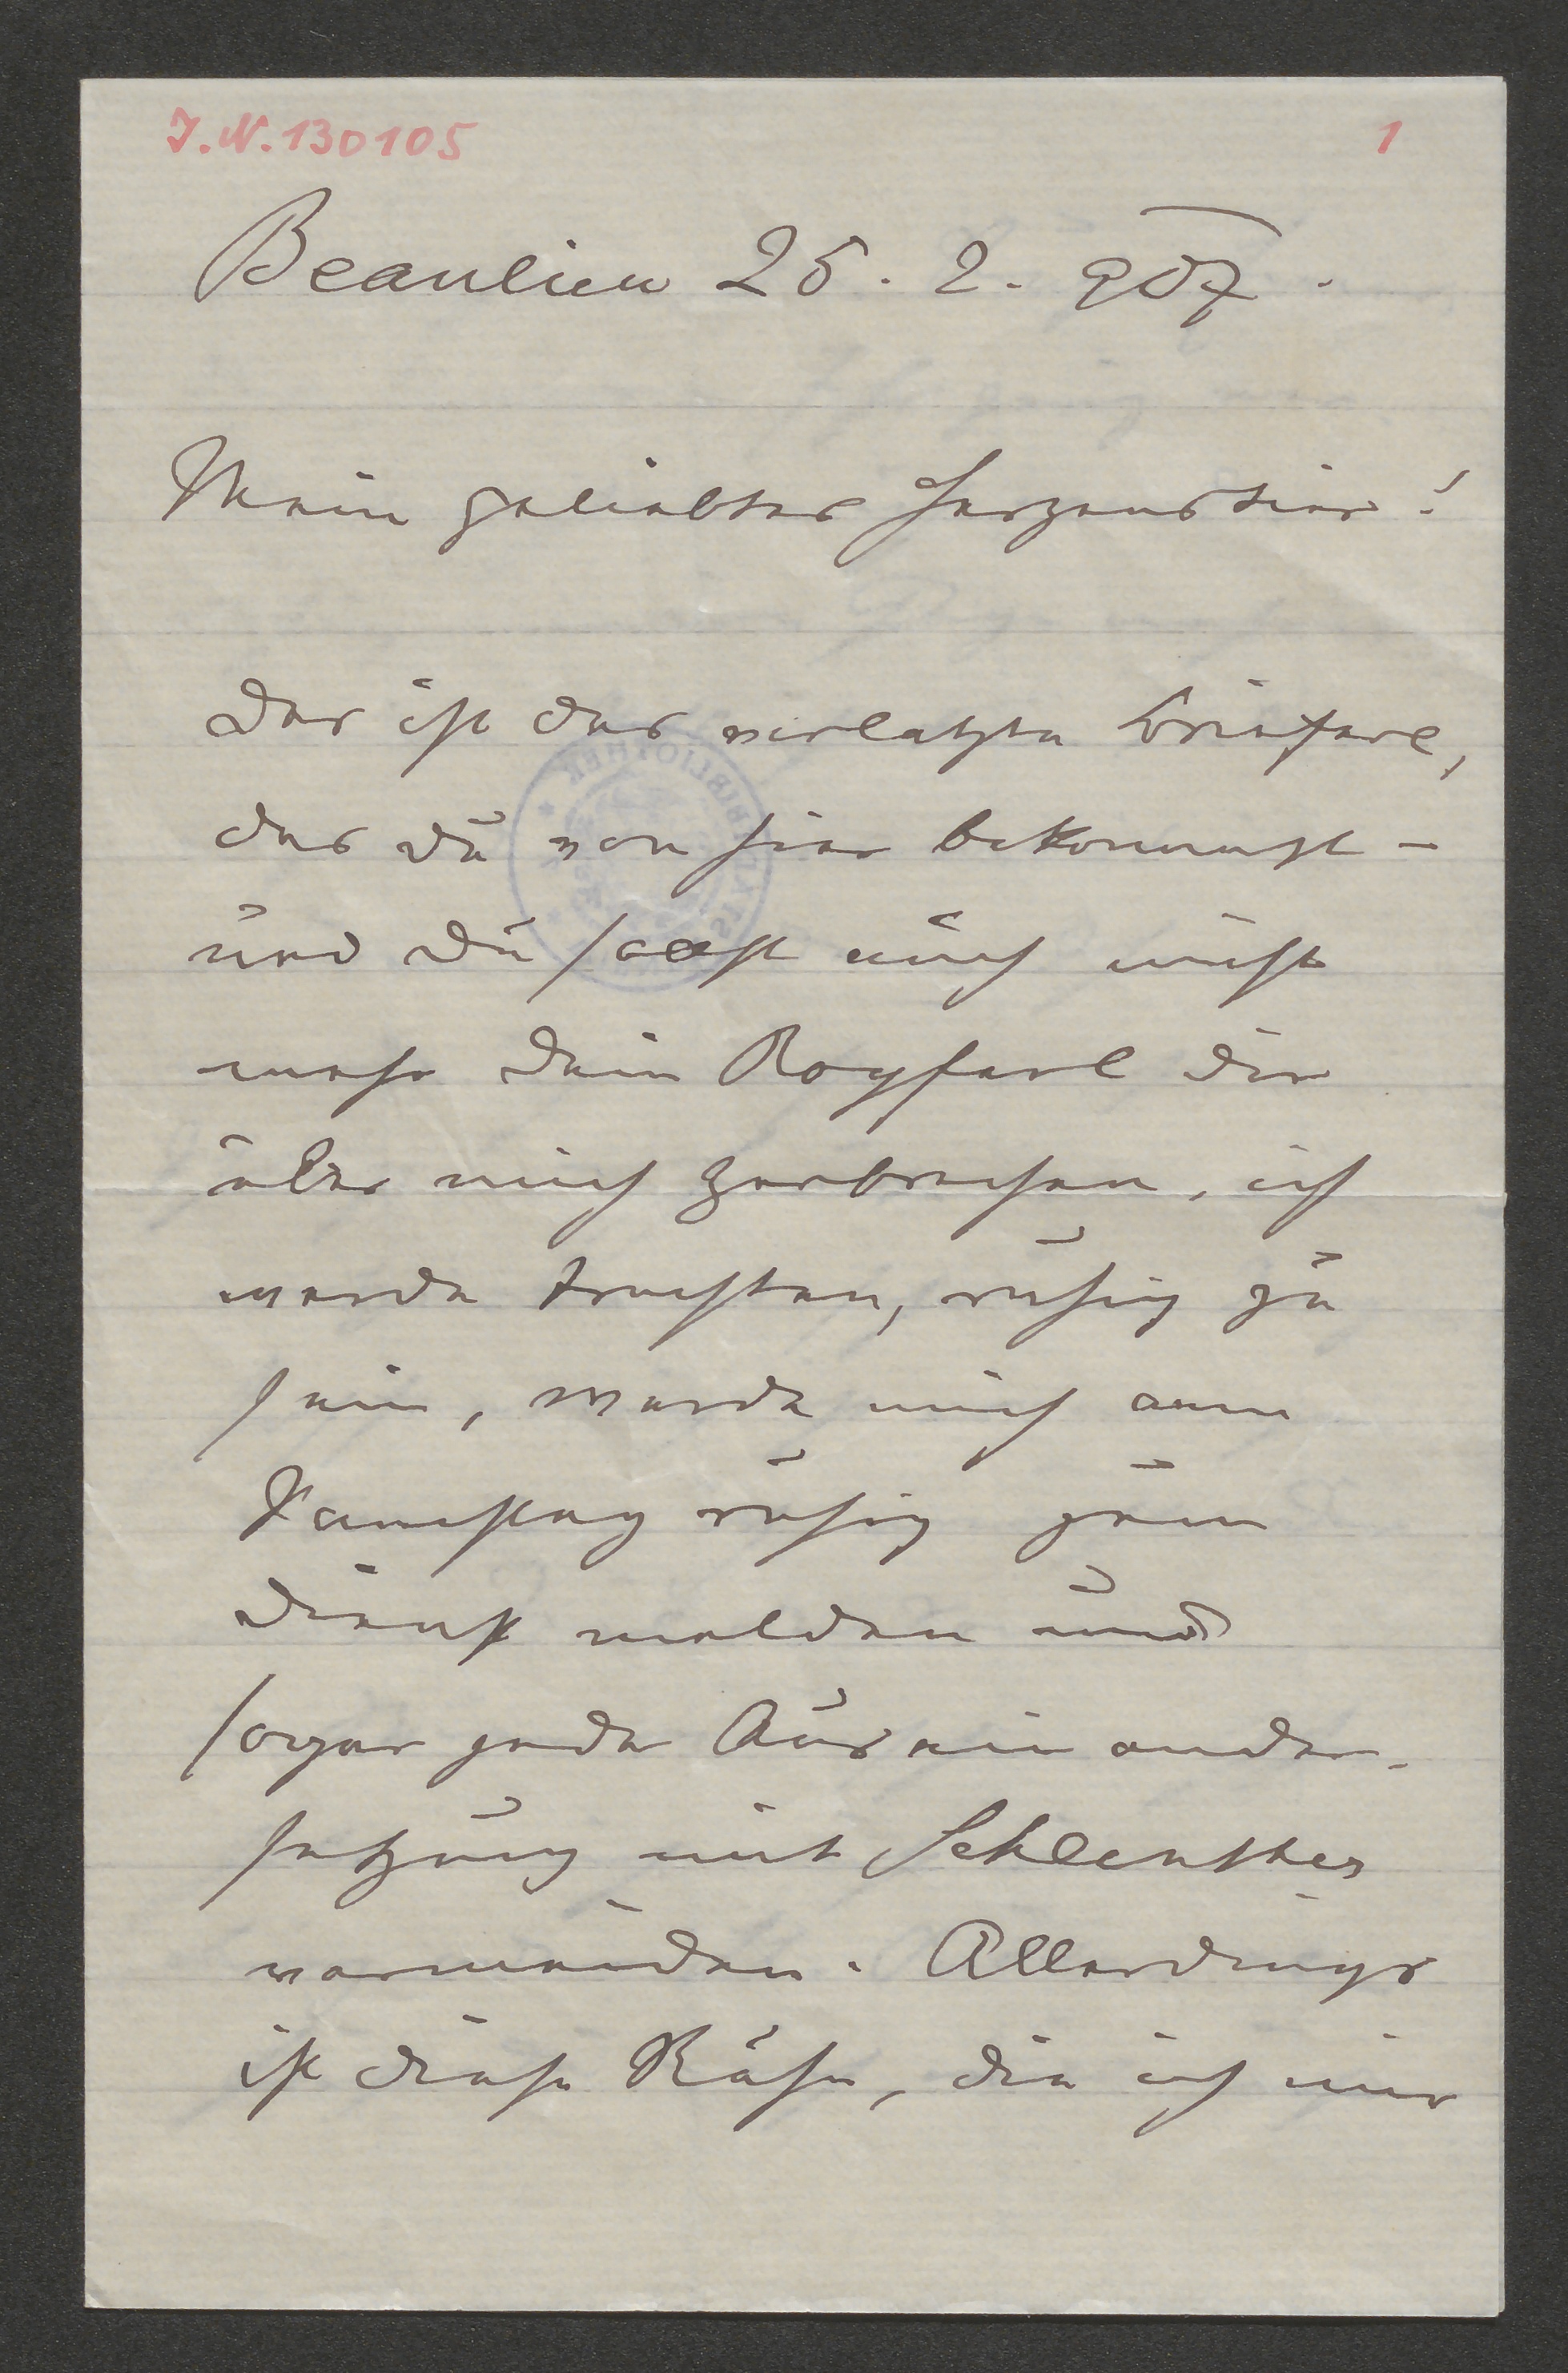 J.N. 130105
1
Beaulieu 25. 2. 907.
Mein geliebtes Herzenstier!
Das ist das vorletzte Brieferl,
das du von hier bekommst –
und du sollst auch nicht
mehr dein Kopferl dir
über mich zerbrechen, ich
werde trachten, ruhig zu
sein, werde mich am
Samstag ruhig zum
Dienst melden und
sogar jede Auseinander-
setzung mit Schlenther
vermeiden. Allerdings
ist diese Ruhe, die ich mir
BIBLIOTHEK